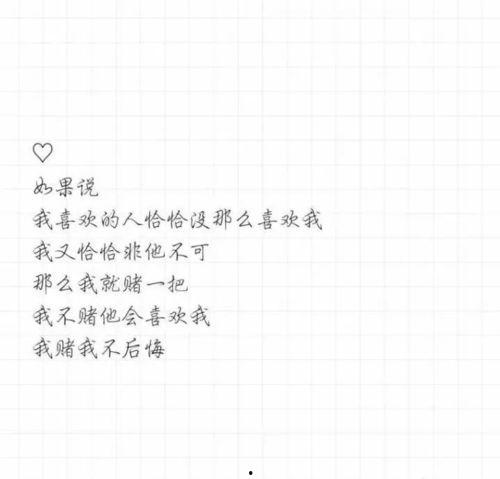 ♡
如果说
我喜欢的人恰恰没那么喜欢我
我又恰恰非他不可
那么我就赌一把
我不赌他会喜欢我
我赌我不后悔